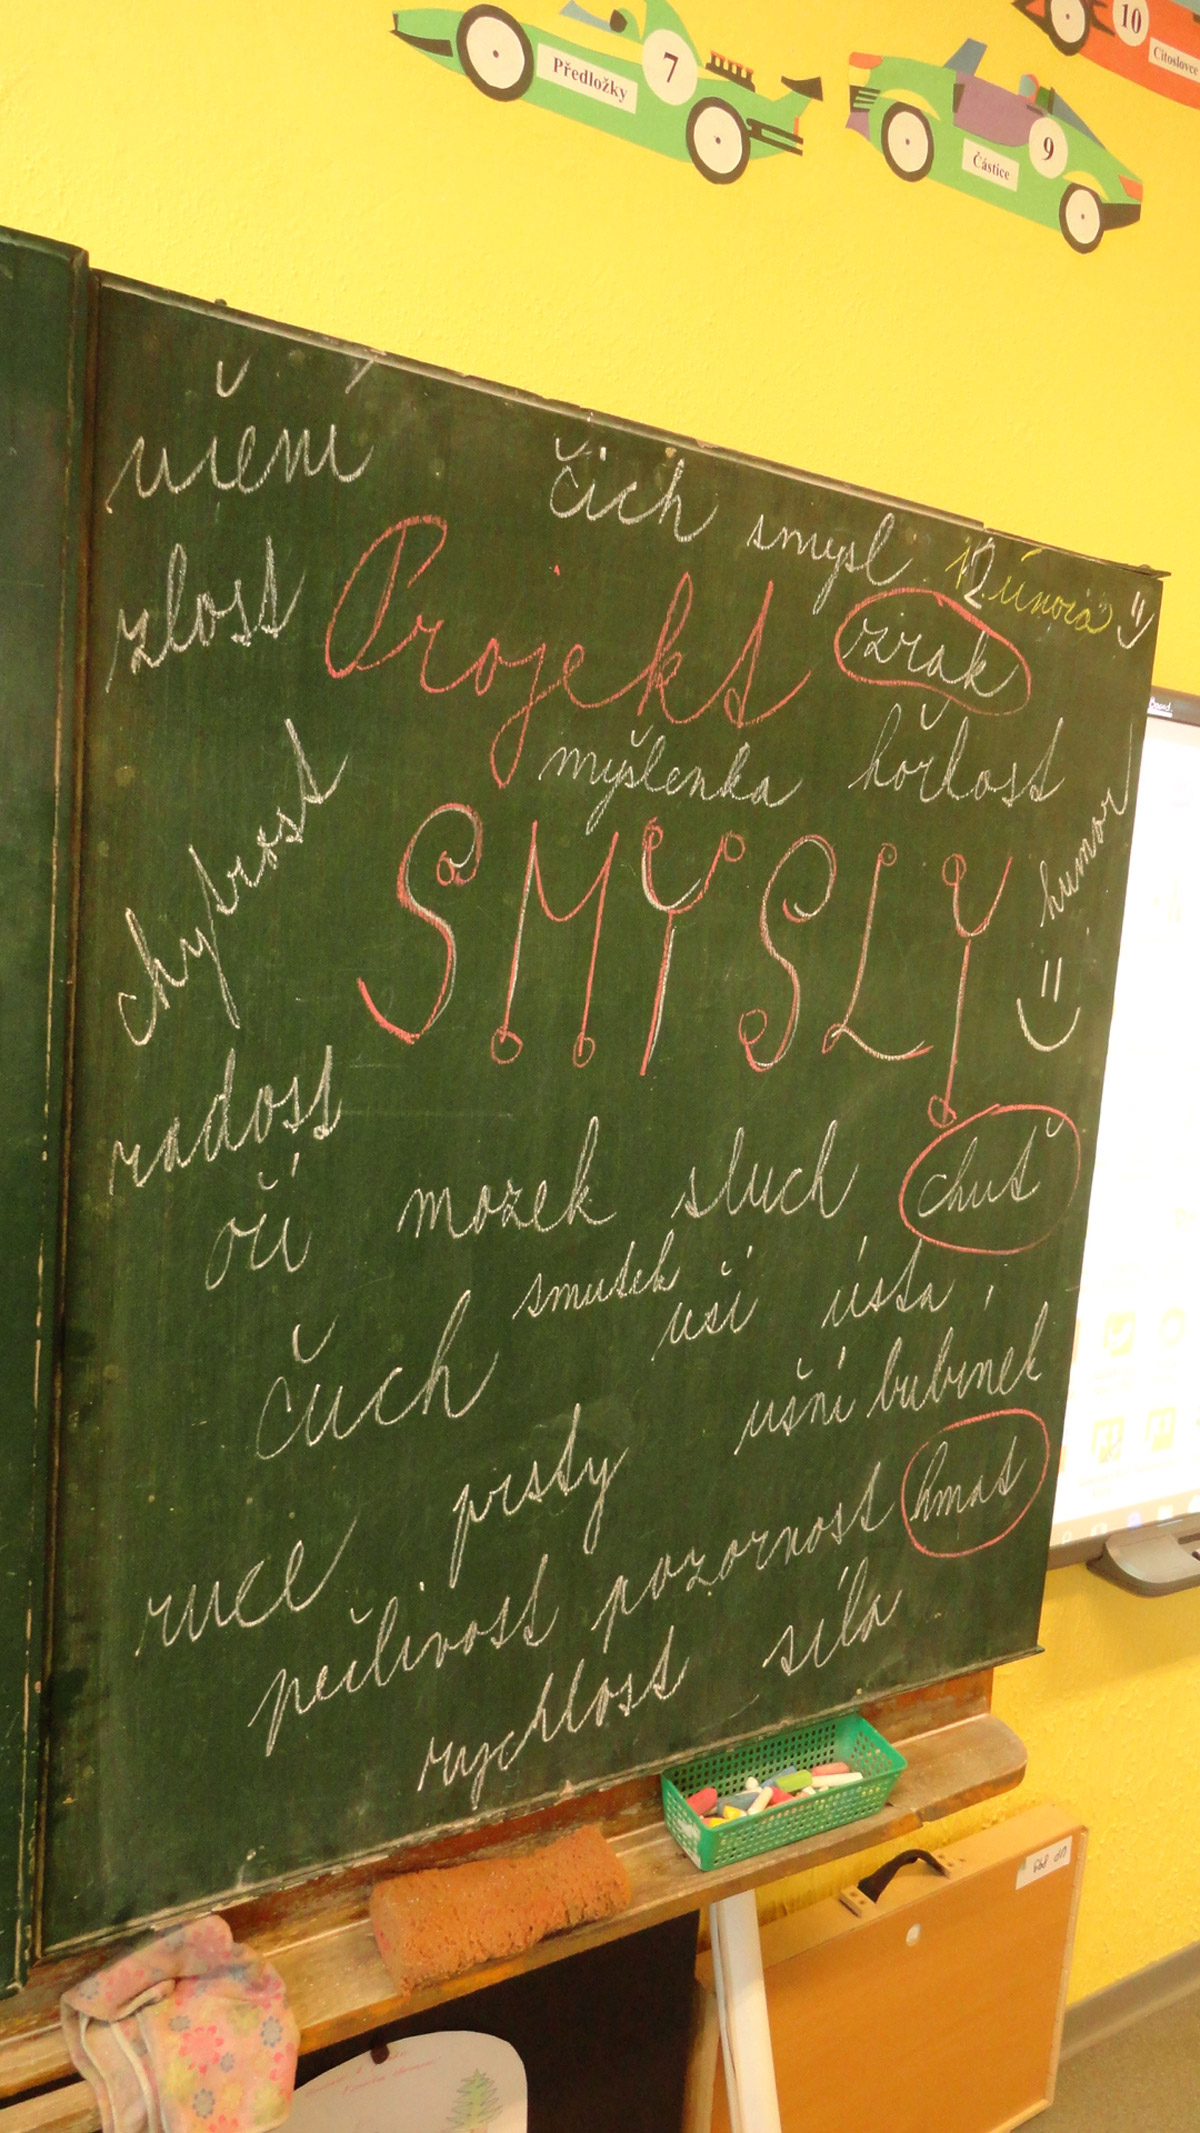 Předložky 7
9 Částice
10 Citoslovce
učení
čich smysl 12. února
zlost Projekt zrak
myšlenka hořkost
chytrost SMYSLY humor
radost
oči mozek sluch chuť
smutek uši ústa
čuch ušní bubínek
prsty hmat
ruce pečlivost pozornost
rychlost síla